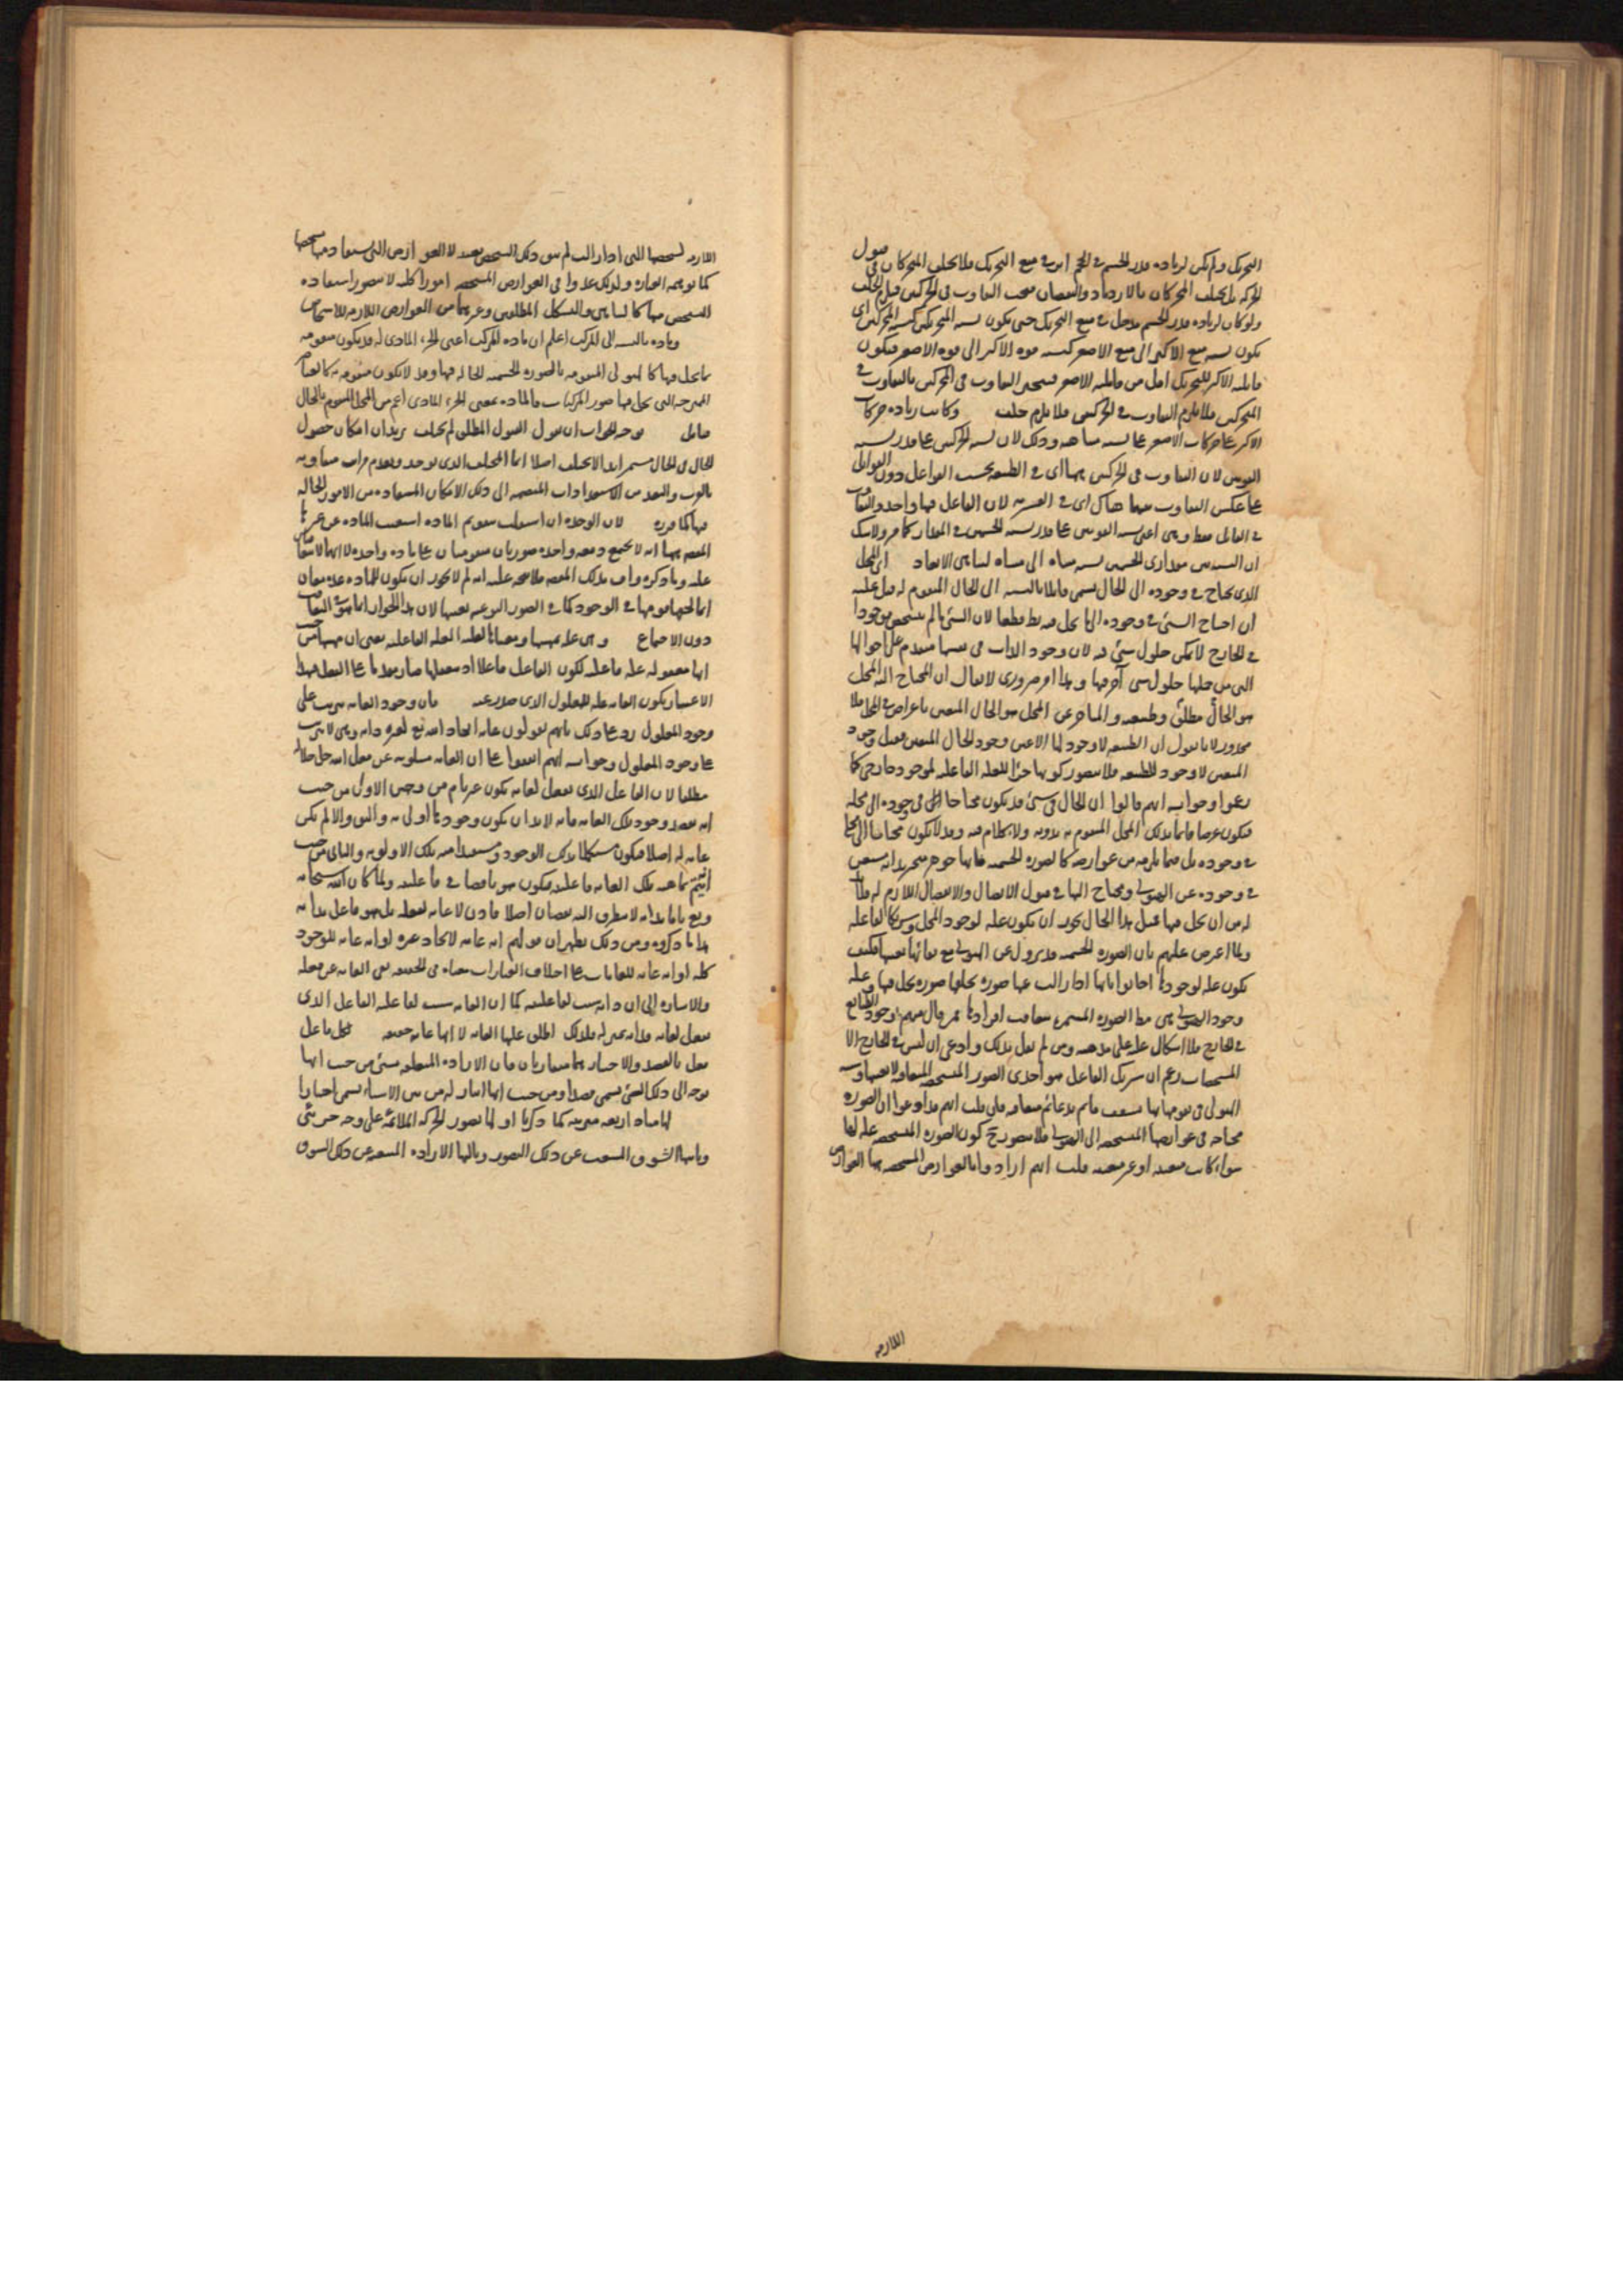 التحريك ولم يكن لزيادة قدر الجسم في الحجم اثر في منع التحريك فلا يختلف المتحركان في قبول
الحركة بل يختلف المحركان بالازدياد والنقصان فيجب التفاوت في الحركتين فيلزم الخلف
ولو كان لزيادة قدر الجسم مدخل في منع التحريك حتى يكون نسبة المتحركين كنسبة المحركين اى
يكون نسبة منع الاكبر الى منع الاصغر كنسبة قوة الاكبر الى قوة الاصغر فيكون
قابلية الاكبر للتحريك اقل من قابلية الاصغر فينجبر التفاوت في المحركين بالتفاوت في
المتحركين فلا يلزم التفاوت في الحركتين فلا يلزم خلف وكانت زيادة حركات
الاكبر على حركات الاصغر على نسبة متناهية وذلك لان نسبة الحركتين على قدر نسبة
القوتين لان التفاوت في الحركتين ههنا اى في الطبيعية بحسب الفواعل دون القوابل
على عكس التفاوت فيما هناك اى في القسرية لان الفاعل فيها واحد والتفاوت
في القابل فقط وهى اعنى نسبة القوتين على قدر نسبة الجسمين في المقدار كما مر ولا شك
ان النسبة بين مقدارى الجسمين نسبة متناه الى متناه لتناهى الابعاد المحل
الذى يحتاج في وجوده الى الحال يسمى قابلا بالنسبة الى الحال المتقوم له قيل عليه
ان احتياج الشئ في وجوده الى ما يحل فيه بط قطعا لان الشئ ما لم يتشخص موجودا
في الخارج لا يمكن حلول شئ فيه لان وجود الذات في نفسها متقدم على احوالها
التى من جملتها حلول شئ آخر فيها وهذا امر ضرورى لا يقال ان المحتاج اليه المحل
هو الحال مطلق وطبيعته والمتاخر عن المحل هو الحال المتعين باعراض في المحل فلا
محذور لانا نقول ان الطبيعة لا وجود لها الا عين وجود الحال المتعين فقبل وجود
المتعين لا وجود للطبيعة فلا يتصور كونها جزأ للعلة الفاعلية لموجود خارجى كما
زعموا وجوابه انهم قالوا ان الحال في شئ قد يكون محتاجا في وجوده الى محله
فيكون عرضا قائما بذلك المحل المتقوم به بدونه ولا كلام فيه وقد لا يكون محتاجا الى المحل
في وجوده بل فيما يلزمه من عوارضه كالصورة الجسمية فانها جوهر متحيز بذاته مستغن
في وجوده عن الهيولى ومحتاج اليها في قبول الاتصال والانفصال اللازم له فلا بد
له من ان يحل فيها فمثل هذا الحال يجوز ان يكون علة لوجود المحل وشريكا لفاعله
ولما اعترض عليهم بان الصورة الجسمية قد تزول عن الهيولى مع بقائها بعينها فكيف
يكون علة لوجودها اجابوا بانها اذا زالت عنها صورة يخلفها صورة يحل فيها وعلة
وجود الهيولى هى مط الصورة المستمرة بتعاقب افرادها فمن قال منهم بوجود الطبائع
في الخارج فلا اشكال عليه على مذهبه ومن لم يقل بذلك وادعى ان ليس في الخارج الا
المشخصات زعم ان شريك الفاعل هو احدى الصور المتشخصة المتعاقبة لا بعينها ونسبة
الهيولى في تقومها بها كسقف قائم بدعائم متعاقبة فان قلت انهم قد ادعوا ان الصورة
محتاجة في عوارضها المشخصة الى الهيولى فلا يتصور ح كون الصورة المتشخصة علة لها
سواء كانت معينة او غير معينة قلت انهم ارادوا بالعوارض المشخصة بها العوارض
اللازمة
اللازمة لتشخصها التى اذا زالت لم يبق ذلك التشخص بعينه لا العوارض التى يستفاد منها تشخصها
كما توهمه العبارة ولذلك عدوا في العوارض المشخصة امورا كلية لا يتصور استفادة
التشخص منها كالتناهى والتشكل المطلقين وغيرهما من العوارض اللازمة للاشخاص
ومادة بالنسبة الى المركب اعلم ان مادة المركب اعنى الجزء المادى له قد يكون متقومة
بما يحل فيها كالهيولى المتقومة بالصورة الجسمية الحالة فيها وقد لا يكون متقومة به كالعناصر
الممتزجة التى يحل فيها صور المركبات فالمادة بمعنى الجزء المادى اعم من المحل المتقوم بالحال
قابل توجه الجواب ان يقول القبول المطلق لم يختلف يريد ان امكان حصول
الحال في المحال مستمر ابدا لا يختلف اصلا انما المختلف الذى يوجد ويعدم مراتب متفاوتة
بالقرب والبعد من الاستعدادات المنضمة الى ذلك الامكان المستفادة من الامور الحالة
فيها كما قرره لان الواحدة ان استقلت بتقويم المادة استغنت المادة عن غيرها
المفهوم منها انه لا يجتمع دفعة واحدة صورتان مقومتان على مادة واحدة لا انها لا يتعاقبان
عليه وما ذكره واف بذلك المفهوم فلا يتجه عليه انه لم لا يجوز ان يكون للمادة عدة معان
ايها لحقها قومها في الوجود كما في الصور النوعية نفسها لان هذا الجواز انما هو في التعاقب
دون الاجتماع وهى علة بمهيتها ومعناها لعلية العلة الفاعلية يعنى ان مهيتها من حيث
انها معقولة علة فاعلية لكون الفاعل فاعلا اذ بتعقلها صار مقدما على الفعل فبهذا
الاعتبار يكون الغاية علة للمعلول الذى صدر عنه فان وجود الغاية مرتب على
وجود المعلول رد على ذلك بانهم يقولون غاية ايجاد الله تع لغيره ذاته وهى لا يترتب
على وجود المعلول وجوابه انهم اتفقوا على ان الغاية مسلوبة عن فعل الله جل جلاله
مطلقا لان الفاعل الذى يفعل لغاية يكون غير تام من وجهين الاول من حيث
انه يقصد وجود تلك الغاية فانه لا بد ان يكون وجودها اولى به واليق والا لم يكن
غاية له اصلا فيكون مستكملا بذلك الوجود ومستفيدا منه تلك الاولوية والثانى من حيث
انه يتم بماهية تلك الغاية فاعليته فيكون هو ناقصا في فاعليته ولما كان الله سبحانه
وتع تاما بذاته لا يتطرق اليه نقصان اصلا فاذن لا غاية لفعله بل هو فاعل بذاته
هذا ما ذكروه ومن ذلك يظهر ان قولهم انه غاية لايجاد غيره او انه غاية للوجود
كله او انه غاية للغايات على اختلاف العبارات معناه في الحقيقة نفى الغاية عن فعله
والاشارة الى ان ذاته سبب لفاعليته كما ان الغاية سبب لفاعلية الفاعل الذى
يفعل لغاية فذاته بمنزلة فلذلك اطلق عليها الغاية لا انها غاية حقيقة فكل فاعل
يفعل بالقصد والاختيار هما متقاربان فان الارادة المتعلقة بشئ من حيث انها
توجه الى ذلك الشئ يسمى قصدا ومن حيث انها ايثار له من بين الاشياء يسمى اختيارا
لها مباد اربعة مترتبة كما ذكرنا اولها تصور الحركة الملائمة على وجه جزئى
وثانيها الشوق المنبعث عن ذلك التصور وثالثها الارادة المنبعثة عن ذلك الشوق